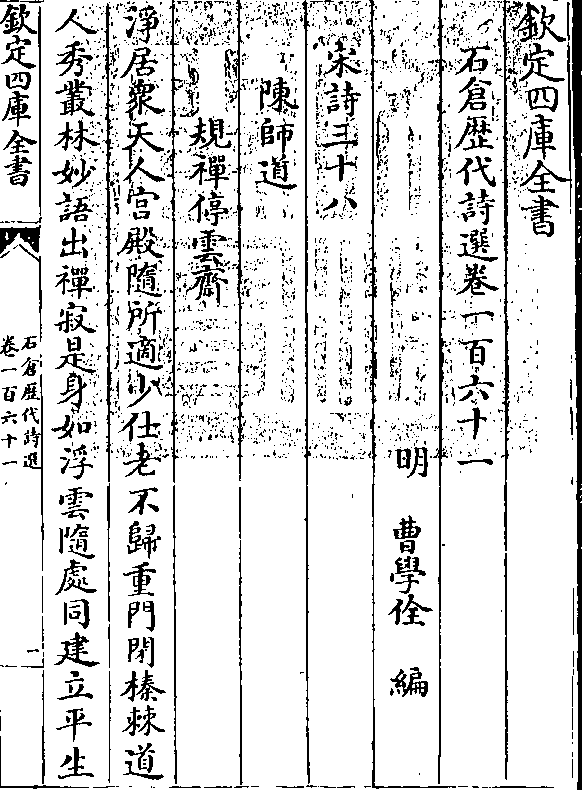 欽定四庫全書
石倉歴代詩選卷一百六十一
明 曹學佺 編
宋詩三十八
陳師道
規禪停雲齋
淨居衆天人宫殿隨所適少仕老不歸重門閉榛棘道
人秀叢林妙語出禪寂是身如浮雲隨處同建立平生
欽定四庫全書
石倉歴代詩選
卷一百六十一
一